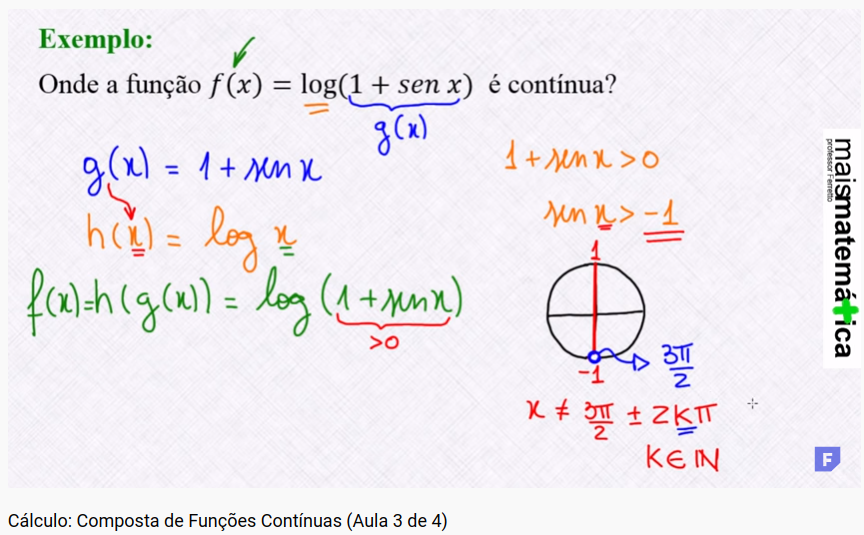 Exemplo:
Onde a função f(x) = log(1 + sen x) é contínua?
g(x)
g(x) = 1 + sen x
h(x) = log x
f(x)=h(g(x)) = log(1+senx)
>0
1+senx>0
sen x > -1
1
-1
3π/2
x ≠ 3π/2 ± 2kπ
K∈ℕ
maismatemática
professor Ferretto
F
Cálculo: Composta de Funções Contínuas (Aula 3 de 4)